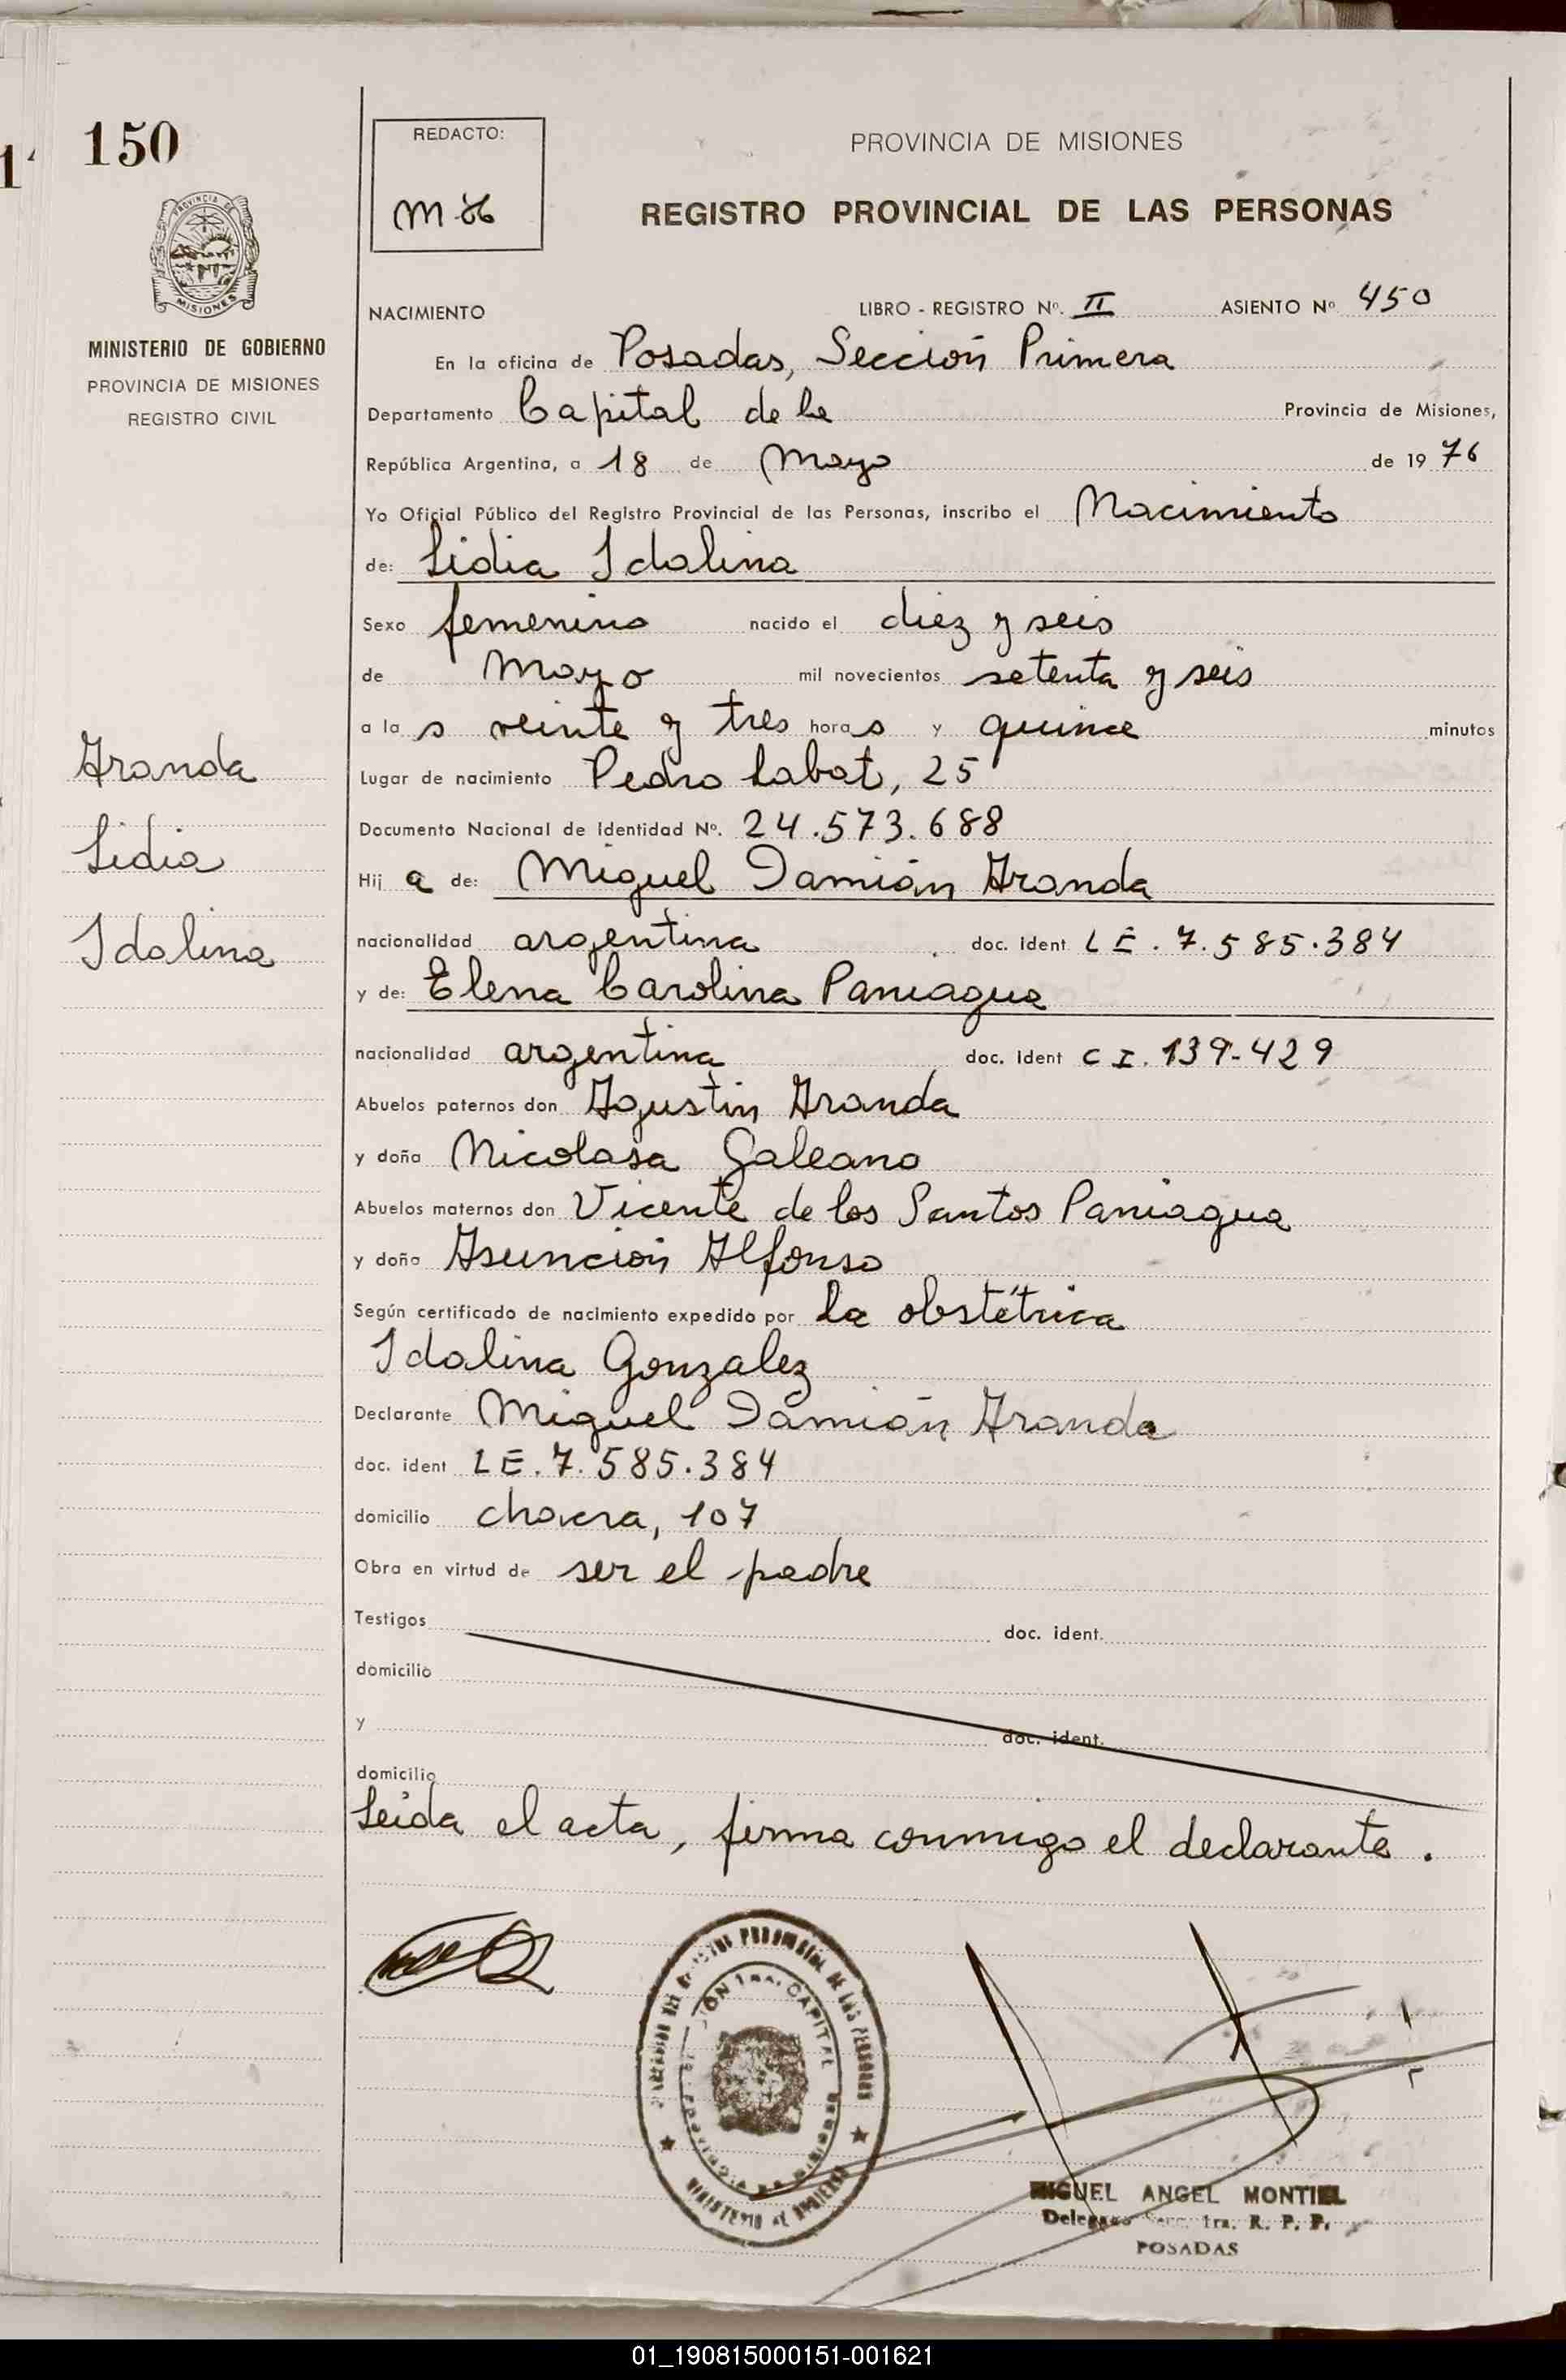 150
REDACTO:
PROVINCIA DE MISIONES
REGISTRO PROVINCIAL DE LAS PERSONAS
PROVINCIA DE
MISIONES
MINISTERIO DE GOBIERNO
PROVINCIA DE MISIONES
REGISTRO CIVIL
NACIMIENTO LIBRO - REGISTRO Nº. II ASIENTO Nº 450
En la oficina de Posadas, Sección Primera
Departamento Capital de la Provincia de Misiones,
República Argentina, a 18 de Mayo de 1976
Yo Oficial Público del Registro Provincial de las Personas, inscribo el Nacimiento
de: Lidia Idalina
Sexo femenino nacido el diez y seis
de Mayo mil novecientos setenta y seis
a las veinte y tres horas y quince minutos
Aranda
Lidia
Idalina
Lugar de nacimiento Pedro Labat, 25
Documento Nacional de Identidad Nº. 24.573.688
Hija de: Miguel Damián Aranda
nacionalidad argentina doc. ident LE. 7.585.384
y de: Elena Carolina Paniagua
nacionalidad argentina doc. ident C I. 139-429
Abuelos paternos don Agustín Aranda
y doña Nicolasa Galeano
Abuelos maternos don Vicente de los Santos Paniagua
y doña Asunción Alfonso
Según certificado de nacimiento expedido por la obstétrica
Idalina Gonzalez
Declarante Miguel Damián Aranda
doc. ident LE. 7.585.384
domicilio chacra, 107
Obra en virtud de ser el padre
Testigos doc. ident.
domicilio
y doc. ident.
domicilio
Leida el acta, firma conmigo el declarante.
MIGUEL ANGEL MONTIEL
Delegado Secc. 1ra. R. P. P.
POSADAS
01_190815000151-001621